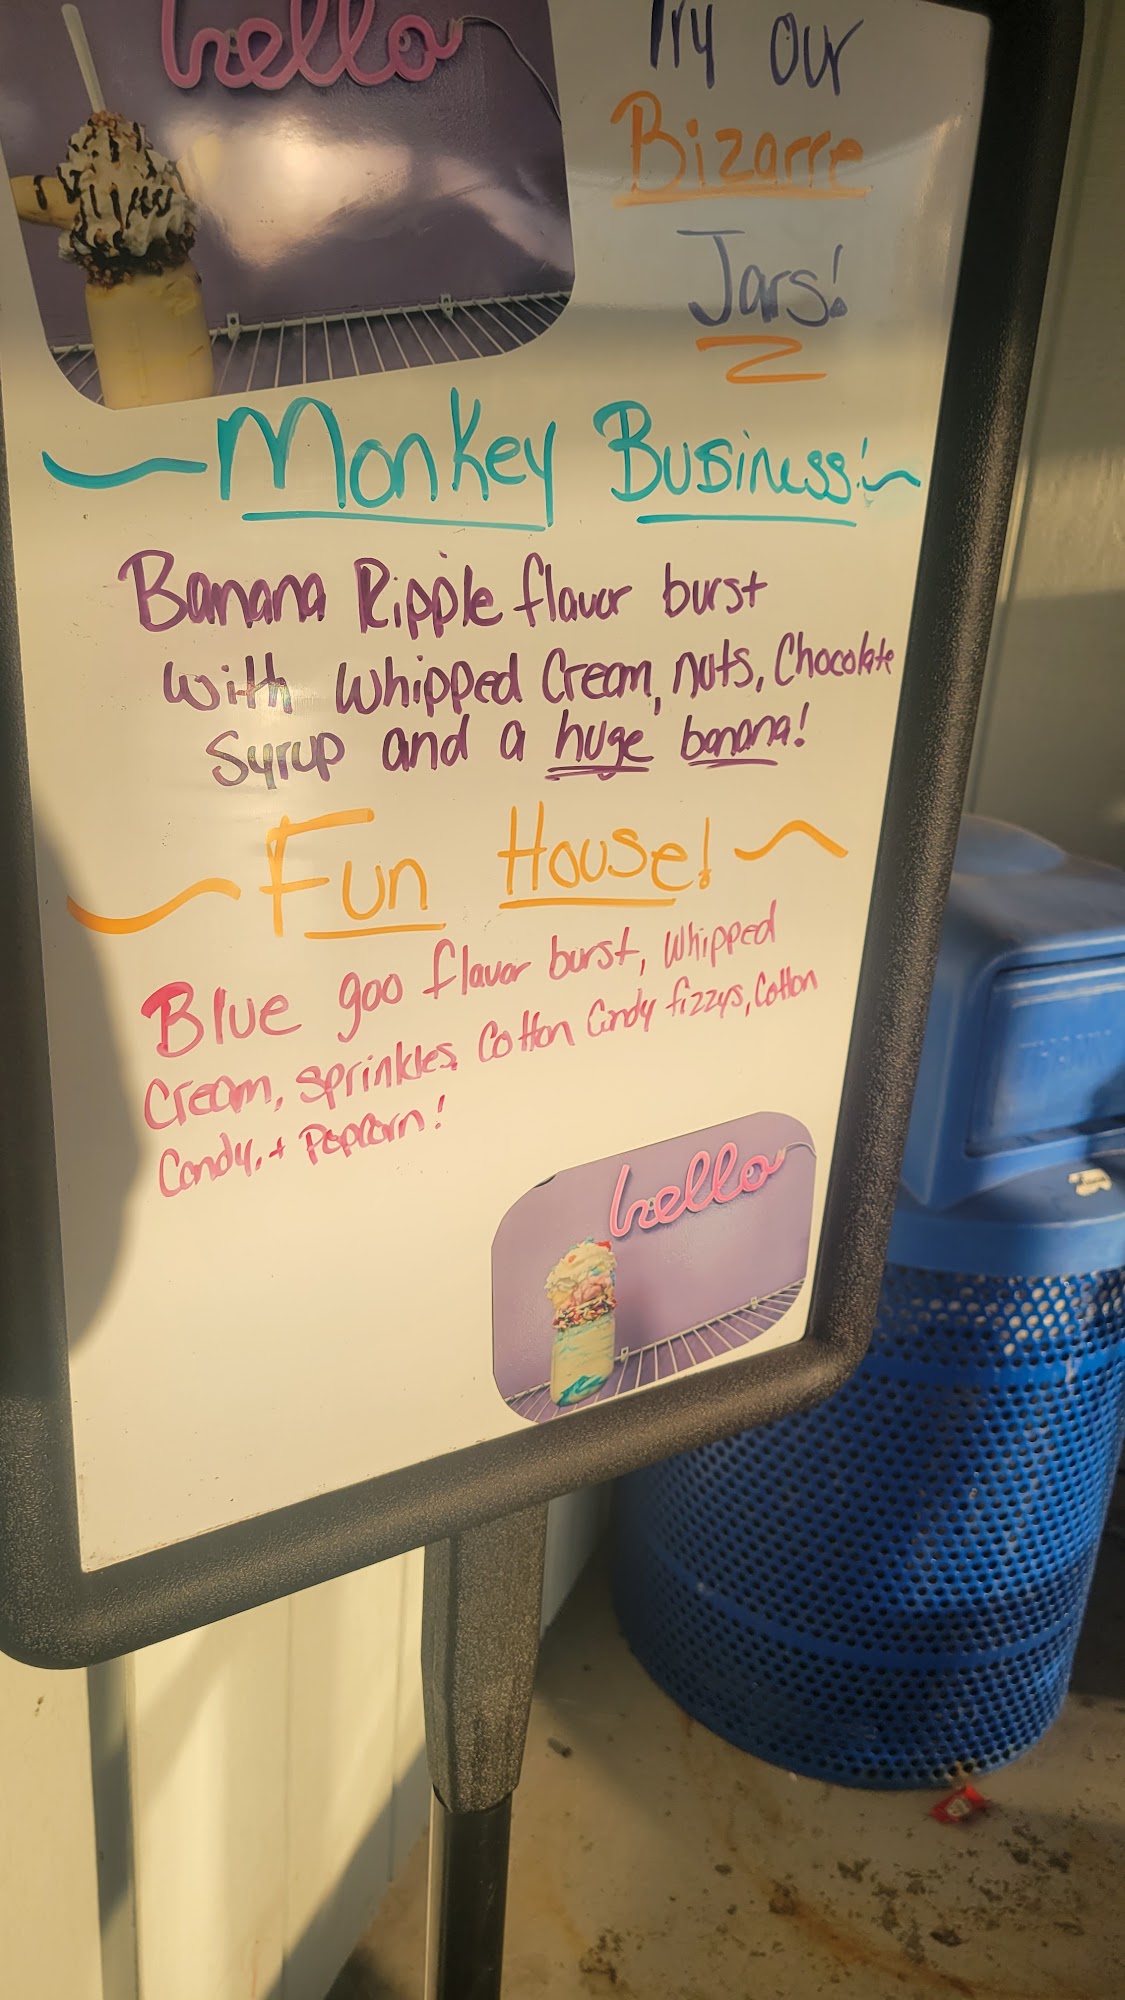 hello
Try our
Bizarre
Jars!
Monkey Business!
Banana Ripple flavor burst
with whipped Cream, nuts, Chocolate
Syrup and a huge banana!
Fun House!
Blue goo flavor burst, whipped
Cream, sprinkles, Cotton Candy fizzys, Cotton
Candy, + Popcorn!
hello
THANK